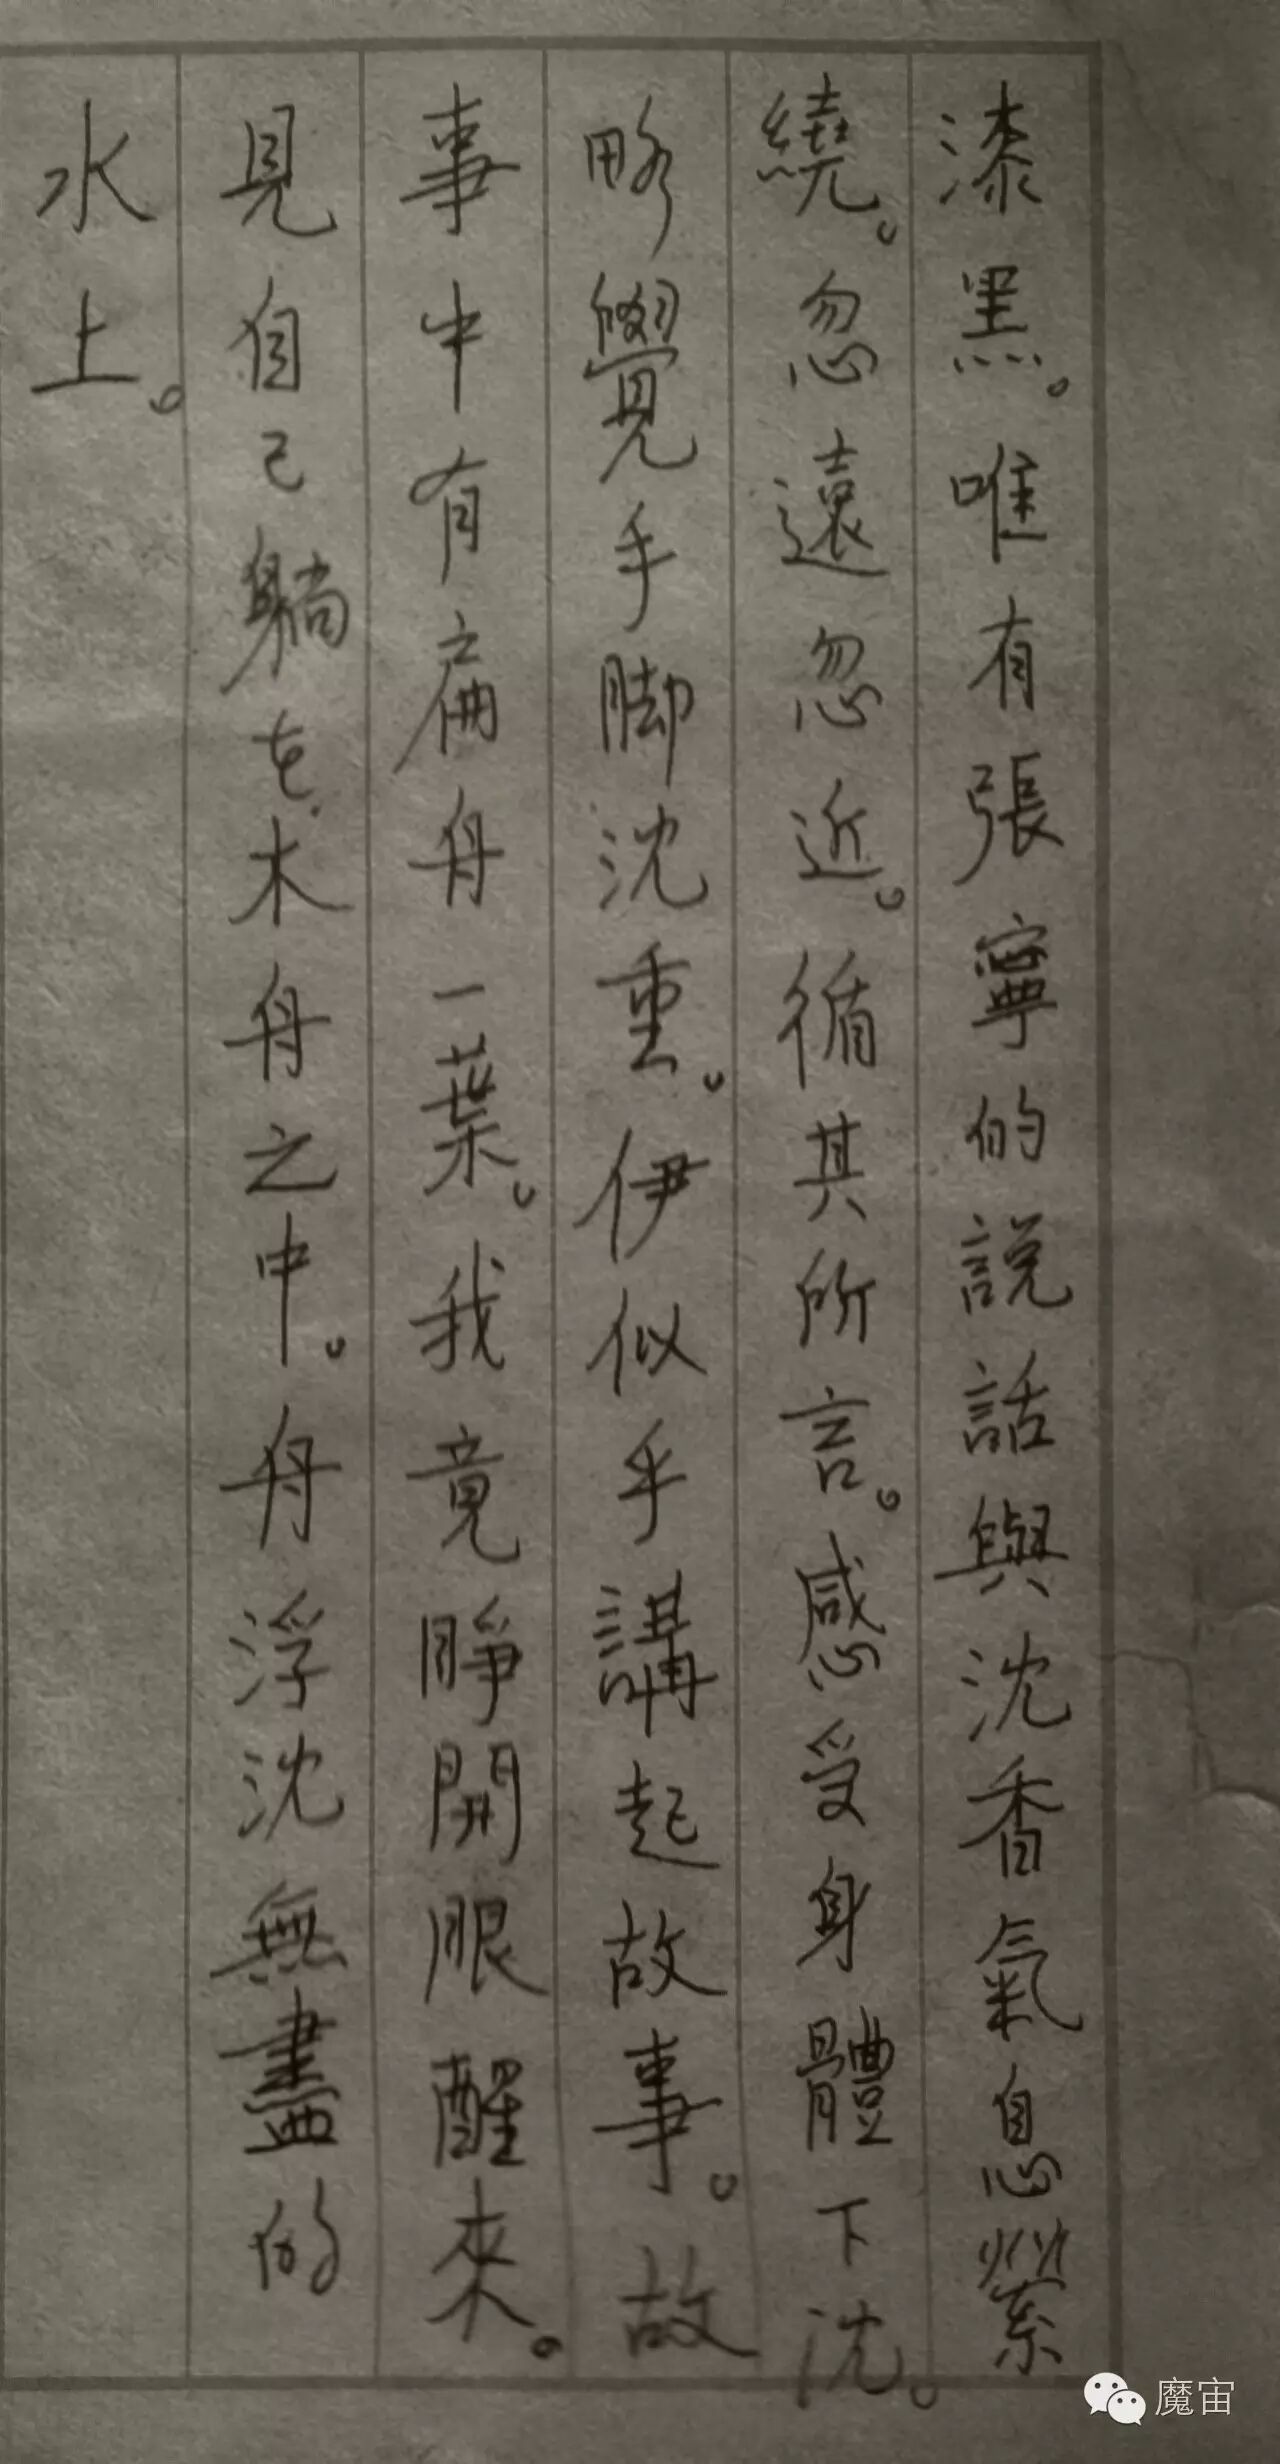 漆黑。唯有張寧的説話與沈香氣息縈
繞。忽遠忽近。循其所言。感受身體下沈。
略覺手脚沈重。伊似乎講起故事。故
事中有扁舟一葉。我竟睜開眼醒來。
見自己躺在木舟之中。舟浮沈無盡的
水上。
魔宙